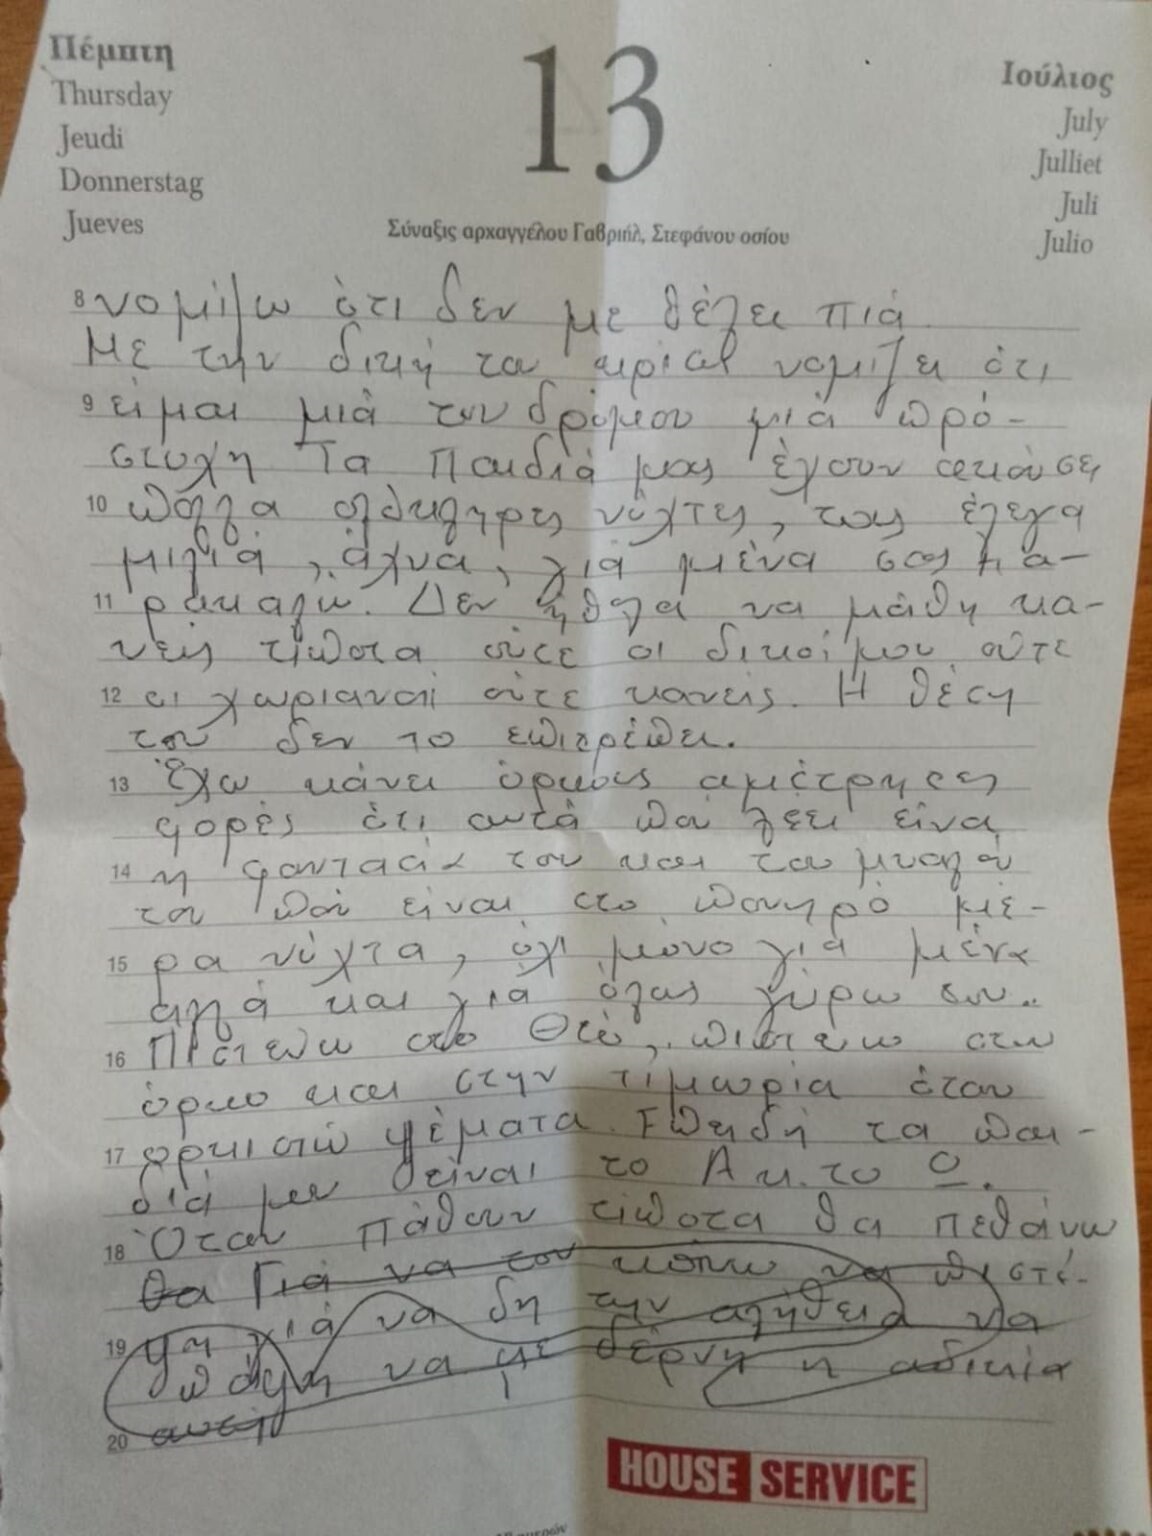 Πέμπτη
Thursday
Jeudi
Donnerstag
Jueves
13
Ιούλιος
July
Julliet
Juli
Julio
Σύναξις αρχαγγέλου Γαβριήλ, Στεφάνου οσίου
8 νομίζω ότι δεν με θέλει πιά
Με την δική του κρίση νομίζει ότι
9 είμαι μιά του δρόμου μιά πρό-
στυχη Τα παιδιά μας έχουν ακούσει
10 πολλά ολόκληρες νύχτες, τους έλεγα
μιλιά, άχνα, γιά μένα σας πα-
11 ρακαλω. Δεν ήθελα να μάθη κα-
νείς τίποτα ούτε οι δικοί μου ούτε
12 οι χωριανοί ούτε κανείς. Η θέση
του δεν το επιτρέπει.
13 Έχω κάνει όρκους αμέτρητες
φορές ότι αυτά που λέει είναι
14 η φαντασία του και του μυαλού
του που είναι στο πονηρό μέ-
15 ρα νύχτα, όχι μόνο γιά μένα
αλλά και γιά όλους γύρω του..
16 Πιστεύω στο Θεό, πιστεύω στον
όρκο και στην τιμωρία όταν
17 ορκιστώ ψέματα. Επειδή τα παι-
διά μου είναι το Α κ. το Ω.
18 Όταν πάθουν τίποτα θα πεθάνω
θα Γιά να τον κάνω να πιστέ-
19 ψη γιά να δη την αλήθεια να
πάψη να με δέρνη η αδικία
20 αυτή
HOUSE SERVICE